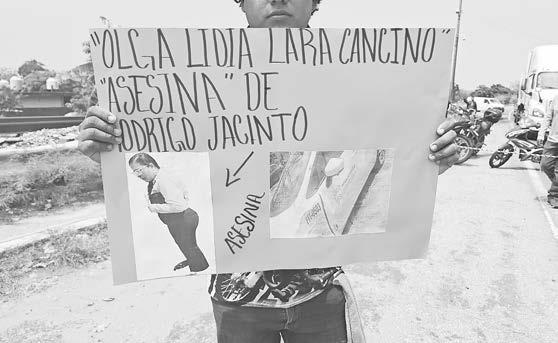 "OLGA LIDIA LARA CANCINO"
"ASESINA" DE
RODRIGO JACINTO
ASESINA